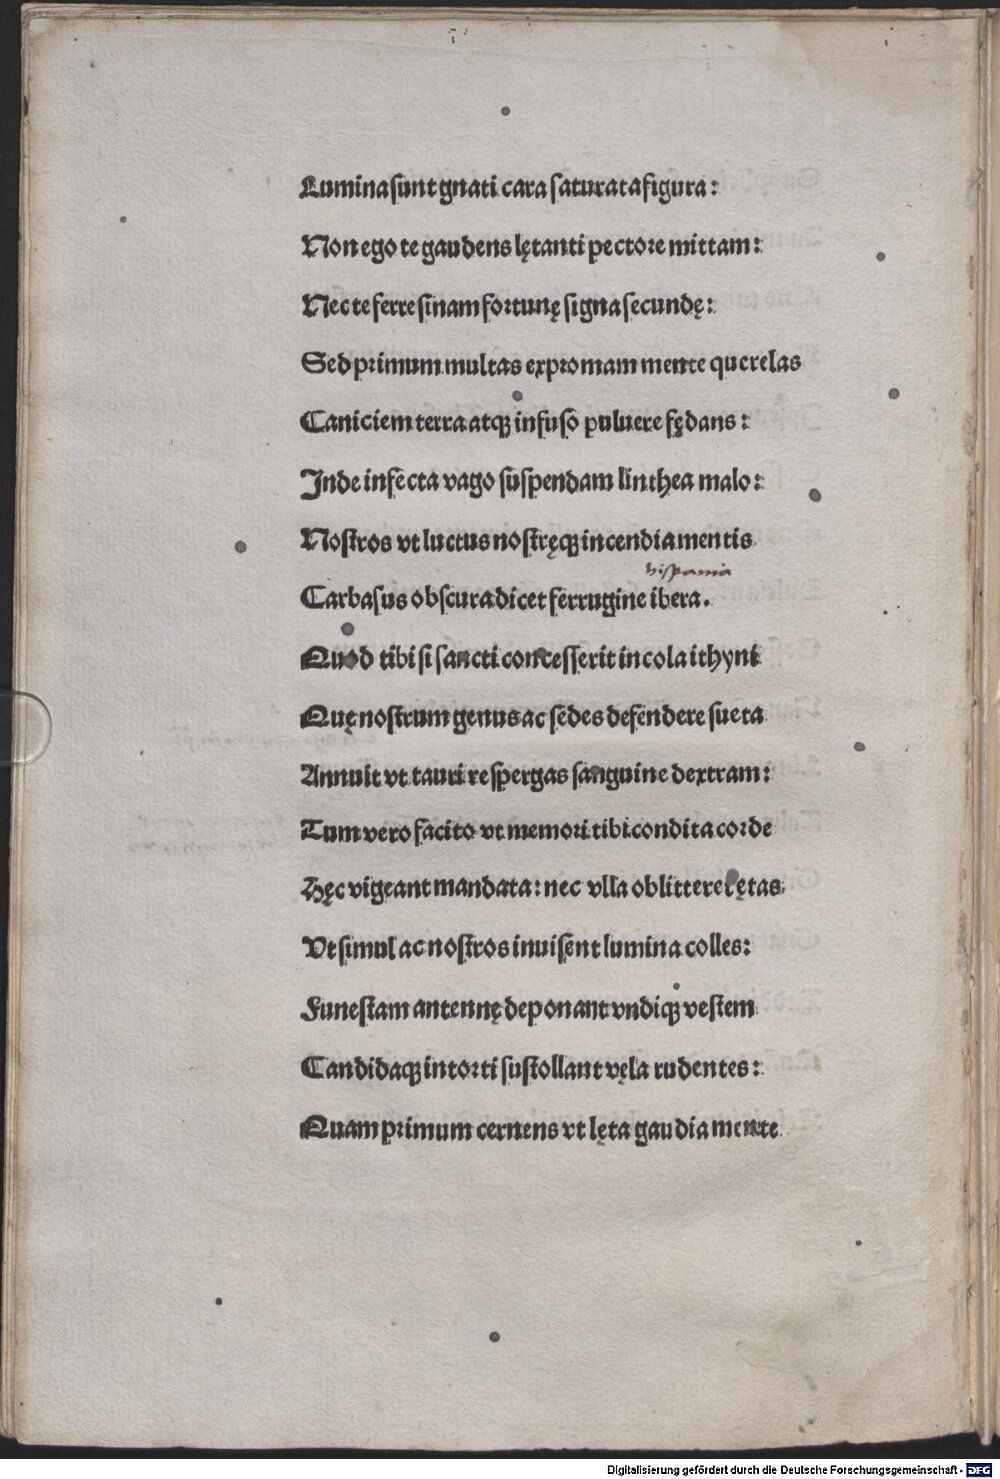 Lumina sunt gnati cara saturata figura:
Non ego te gaudens lętanti pectore mittam:
Nec te ferre sinam fortunę signa secundę:
Sed primum multas expromam mente querelas
Caniciem terra atqꝫ infuso puluere fędans:
Inde infecta vago suspendam linthea malo:
Nostros vt luctus nostręqꝫ incendia mentis
hispania
Carbasus obscura dicet ferrugine ibera.
Quod tibi si sancti concesserit incola ithyni
Quę nostrum genus ac sedes defendere sueta
Annuit vt tauri respergas sanguine dextram:
Tum vero facito vt memori tibi condita corde
Hęc vigeant mandata: nec vlla oblitteret ętas
Vt simul ac nostros inuisent lumina colles:
Funestam antennę deponant vndiqꝫ vestem
Candidaqꝫ intorti sustollant vęla rudentes:
Quam primum cernens vt lęta gaudia mente
Digitalisierung gefördert durch die Deutsche Forschungsgemeinschaft - DFG